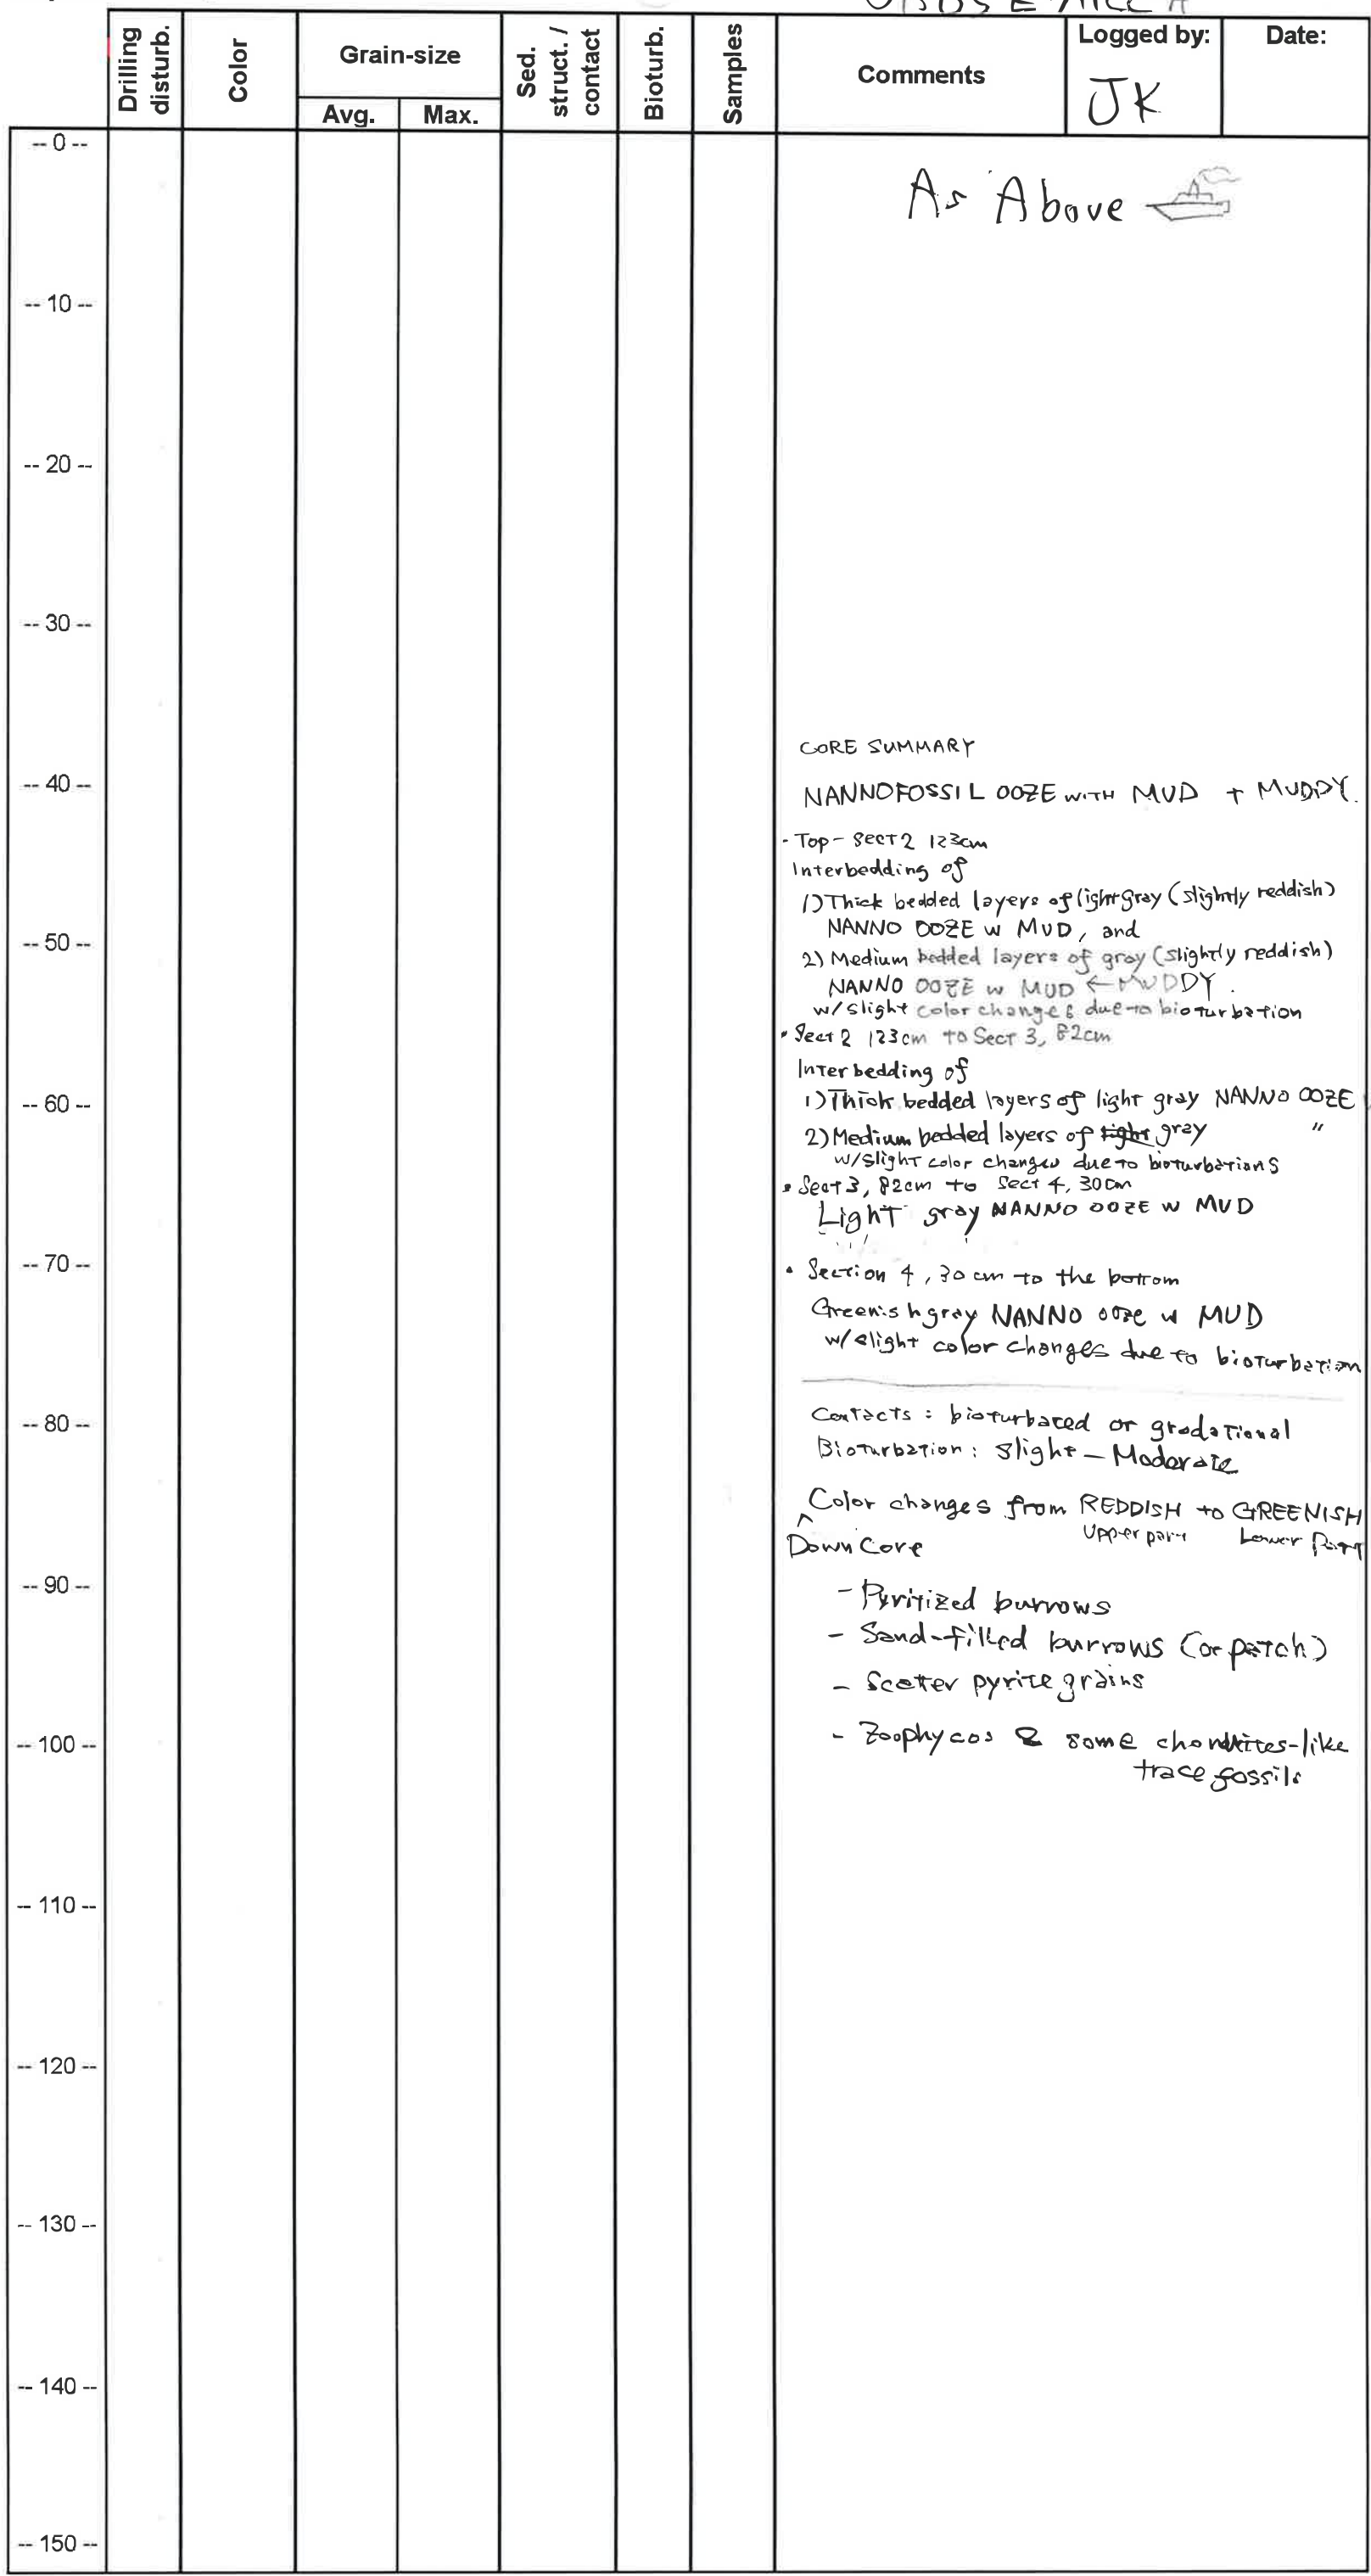 Drilling disturb.
Color
Grain-size
Avg.
Max.
Sed. struct. / contact
Bioturb.
Samples
Comments
Logged by:
JK
Date:
-- 0 --
As Above
-- 10 --
-- 20 --
-- 30 --
CORE SUMMARY
-- 40 --
NANNOFOSSIL OOZE WITH MUD + MUDDY.
- Top - Sect 2 123cm
Interbedding of
1) Thick bedded layers of light gray (slightly reddish)
NANNO OOZE w MUD, and
-- 50 --
2) Medium bedded layers of gray (slightly reddish)
NANNO OOZE w MUD ← MUDDY.
w/ slight color changes due to bioturbation
• Sect 2 123cm to Sect 3, 82cm
Interbedding of
-- 60 --
1) Thick bedded layers of light gray NANNO OOZE
2) Medium bedded layers of light gray "
w/ slight color changes due to bioturbations
• Sect 3, 82cm to Sect 4, 30cm
Light gray NANNO OOZE W MUD
-- 70 --
• Section 4, 30 cm to the bottom
Greenish gray NANNO ooze w MUD
w/ slight color changes due to bioturbation
-- 80 --
Contacts : bioturbated or gradational
Bioturbation : Slight - Moderate
Color changes from REDDISH to GREENISH
Upper part Lower Part
^
Down Core
-- 90 --
- Pyritized burrows
- Sand-filled burrows (or patch)
- Scatter pyrite grains
-- 100 --
- Zoophycos & some chondrites-like
trace fossils
-- 110 --
-- 120 --
-- 130 --
-- 140 --
-- 150 --